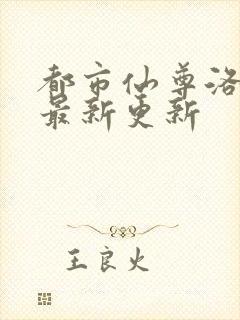 都市仙尊洛
最新更新
王良火